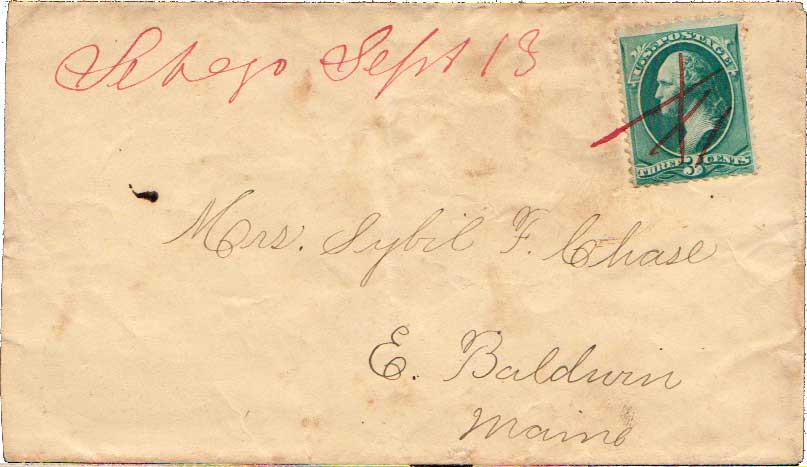 Sebago Sept 13
U.S. POSTAGE
THREE 3 CENTS
Mrs. Sybil F. Chase
E. Baldwin
Maine